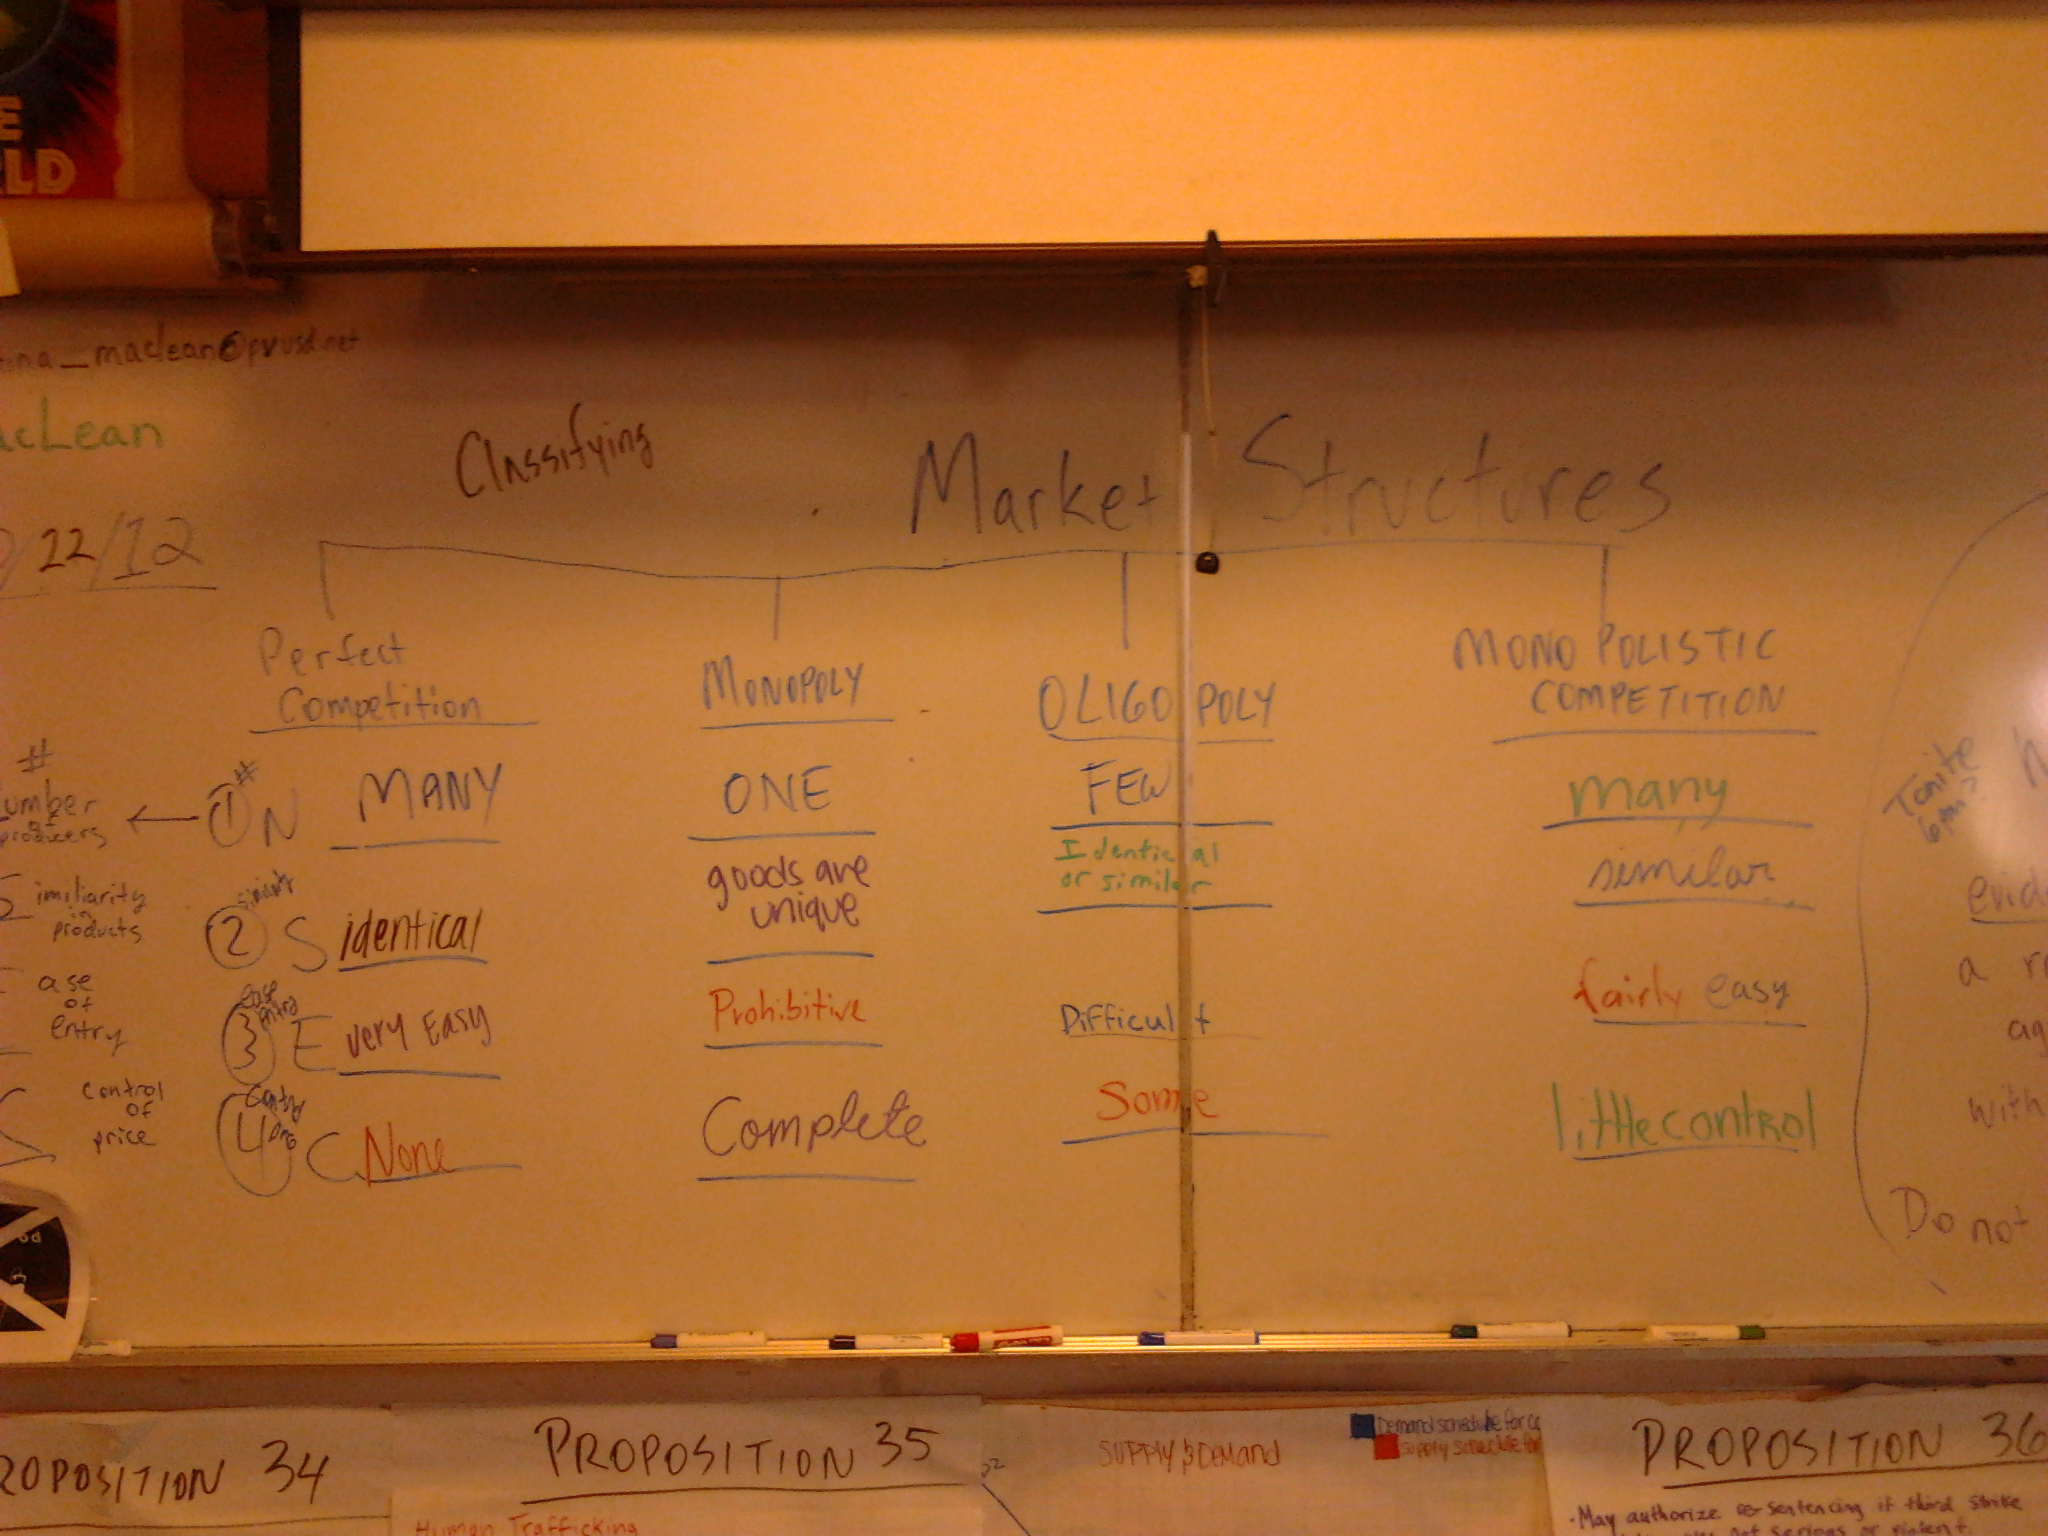 LD
maclean@pvusd.net
acLean
22/12
Classifying
Market Structures
Perfect
Competition
MONOPOLY
OLIGOPOLY
MONOPOLISTIC
COMPETITION
#
umber
of
producers
← ① # N
MANY
ONE
FEW
many
imiliarity
in
products
② S identical
goods are
unique
Identical
or similar
similar
ase
of
entry
③ ease E very Easy
Prohibitive
Difficult
fairly easy
control
of
price
④ C None
Complete
Some
little control
Tonite
a
with
Do not
ROPOSITION 34
PROPOSITION 35
Human Trafficking
SUPPLY & DEMAND
Demand schedule for
Supply schedule for
PROPOSITION 36
• May authorize re-sentencing if third strike